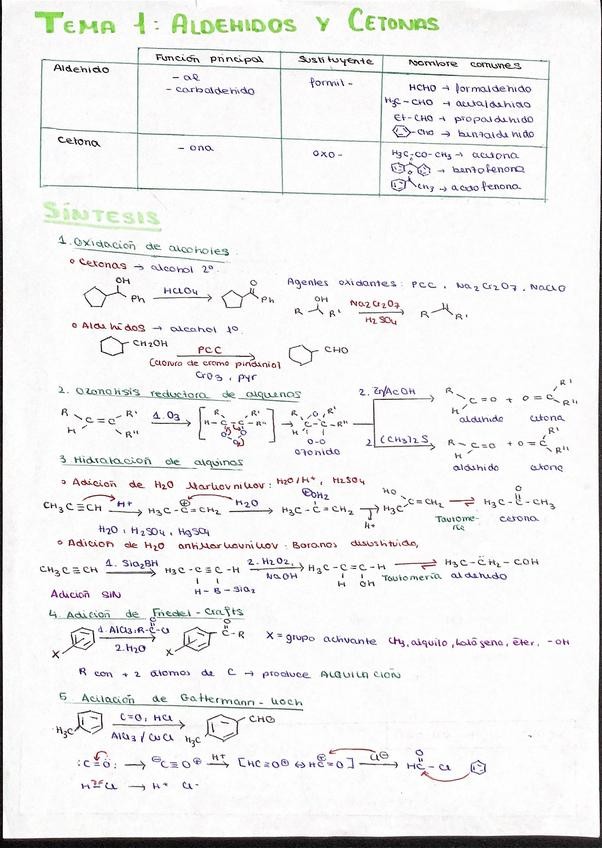 TEMA 1: ALDEHIDOS Y CETONAS
Función principal
Sustituyente
Nombre comunes
Aldehido
- al
- carbaldehido
formil -
HCHO → formaldehido
H3C-CHO → acetaldehido
Et-CHO → propaldehido
-CHO → benzaldehido
Cetona
- ona
oxo -
H3C-CO-CH3 → acetona
→ benzofenona
CH3 → acetofenona
SÍNTESIS
1. Oxidación de alcoholes
• Cetonas → alcohol 2º
OH
Ph
HClO4
O
Ph
Agentes oxidantes: PCC, Na2Cr2O7, NaClO
OH
R R'
Na2Cr2O7
H2SO4
R R'
• Aldehidos → alcohol 1º
CH2OH
PCC
CrO3, pyr
CHO
2. Ozonolisis reductora de alquenos
R R' H C=C R''
1. O3
ozonido
2. Zn/AcOH
R H C=O + O=C R' R''
aldehido cetona
2. (CH3)2S
R H C=O + O=C R' R''
aldehido cetona
3. Hidratación de alquinos
• Adicion de H2O Markovnikov: H2O/H+, H2SO4
CH3C≡CH H+ H3C-C=CH2 H2O H3C-C=CH2 H+ H3C C=CH2 ⇌ H3C-C-CH3
H2O, H2SO4, HgSO4
Tautome-
ria
cetona
• Adicion de H2O antiMarkovnikov: Boranos disustituido,
CH3C≡CH 1. Sia2BH H3C-C=C-H 2. H2O2, NaOH H3C-C=C-H ⇌ H3C-CH2-COH
H - B - Sia2
H OH Tautomeria aldehido
Adición SIN
4. Adición de Friedel-Crafts
X
1. AlCl3, R-C-Cl
2. H2O
X C-R
X = grupo activante CH3, alquilo, halógeno, éter, -OH
R con + 2 átomos de C → produce ALQUILACIÓN
5. Acilación de Gattermann-Koch
H3C
C=O, HCl
AlCl3/CuCl
H3C
CHO
:C=O: → C≡O H+ → [HC≡O ↔ HC=O] Cl → HC-Cl
H-Cl → H+ Cl-